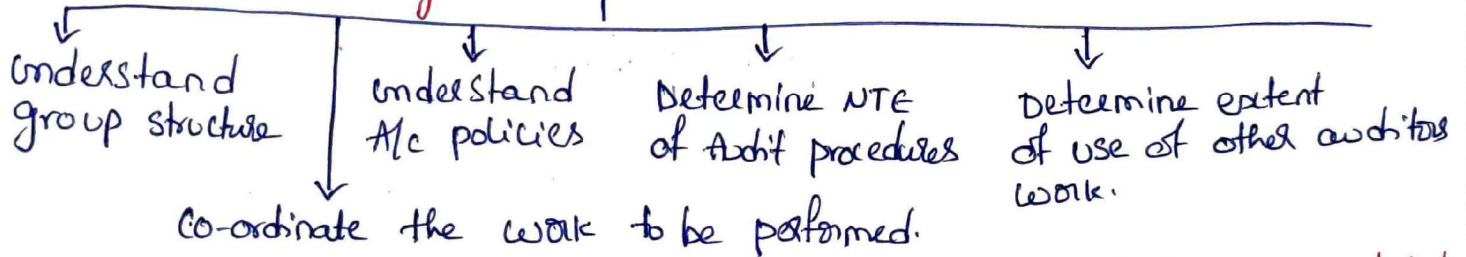 understand
group structure
understand
A/c policies
Determine NTE
of Audit procedures
Determine extent
of use of other auditors
work.
Co-ordinate the work to be performed.